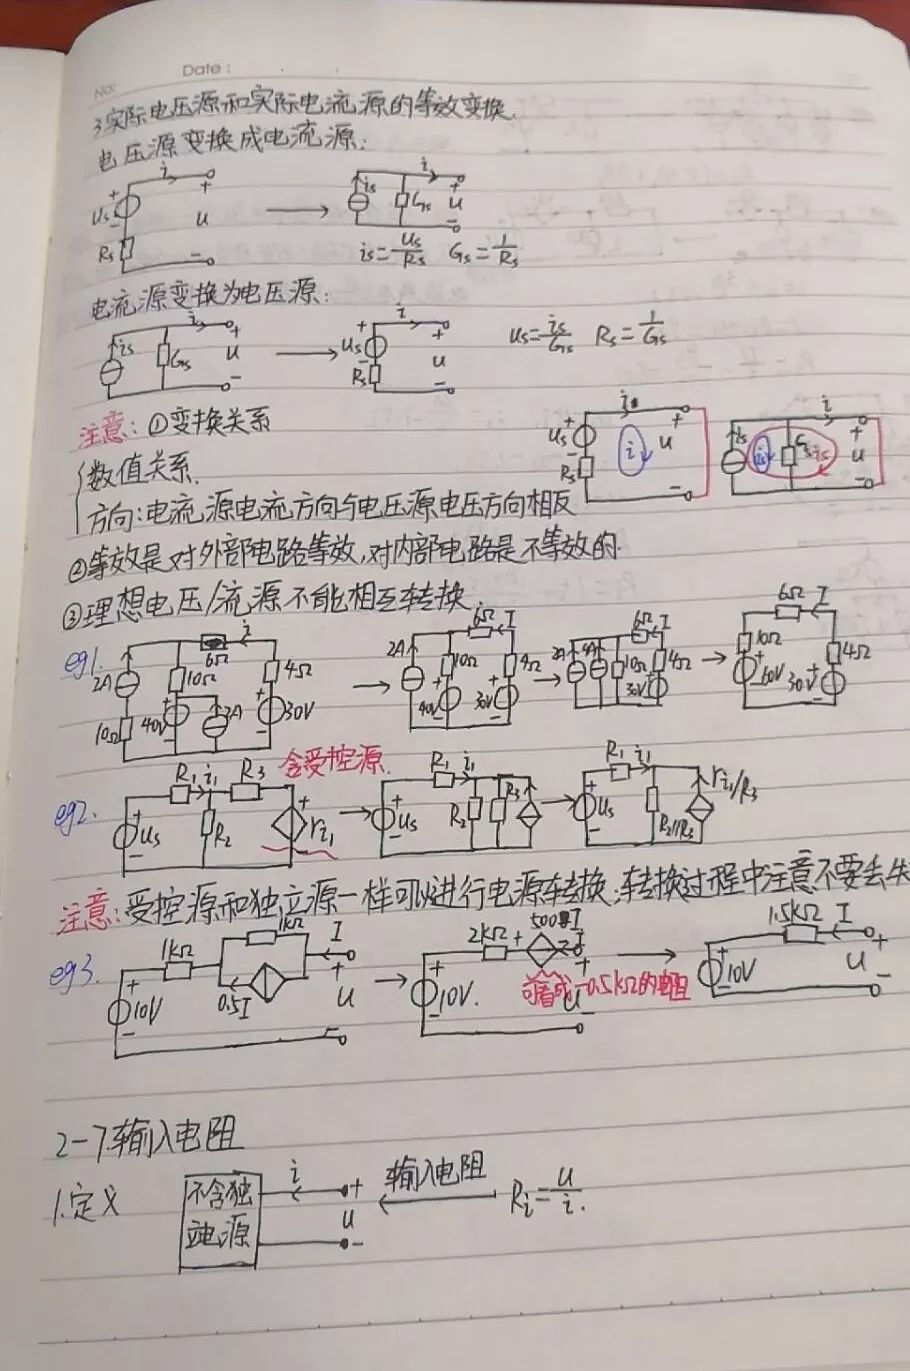 No:
Date:
3.实际电压源和实际电流源的等效变换.
电压源变换成电流源:
i + Us - Rs + u - → is Gs i + u -
is=Us/Rs Gs=1/Rs
电流源变换为电压源:
is Gs i + u - → + Us - Rs i + u - Us=is/Gs Rs=1/Gs
注意: ①变换关系
数值关系.
方向:电流源电流方向与电压源电压方向相反
+ Us - Rs i + u - is i + u -
②等效是对外部电路等效,对内部电路是不等效的.
③理想电压/流源不能相互转换.
eg1. 2A 10Ω 10Ω + 40V - 2A 6Ω i 4Ω + 30V - → 2A 10Ω + 40V - 6Ω I 4Ω + 30V - → 2A 4A 10Ω 6Ω I 4Ω + 30V - → 10Ω + 60V - 6Ω I 4Ω + 30V -
含受控源
eg2. + Us - R1 i1 R3 R2 + ri1 - → + Us - R1 i1 R2 R3 → + Us - R1 i1 R2//R3 ri1/R3
注意:受控源和独立源一样可以进行电源转换,转换过程中注意不要丢失
eg3. + 10V - 1kΩ 1kΩ 0.5I I + u - → + 10V. - 2kΩ + 500I - I + u - → + 10V - 1.5kΩ I + u -
可看成-0.5kΩ的电阻
2-7.输入电阻
1.定义 不含独立电源 i + u - 输入电阻 Ri=u/i.